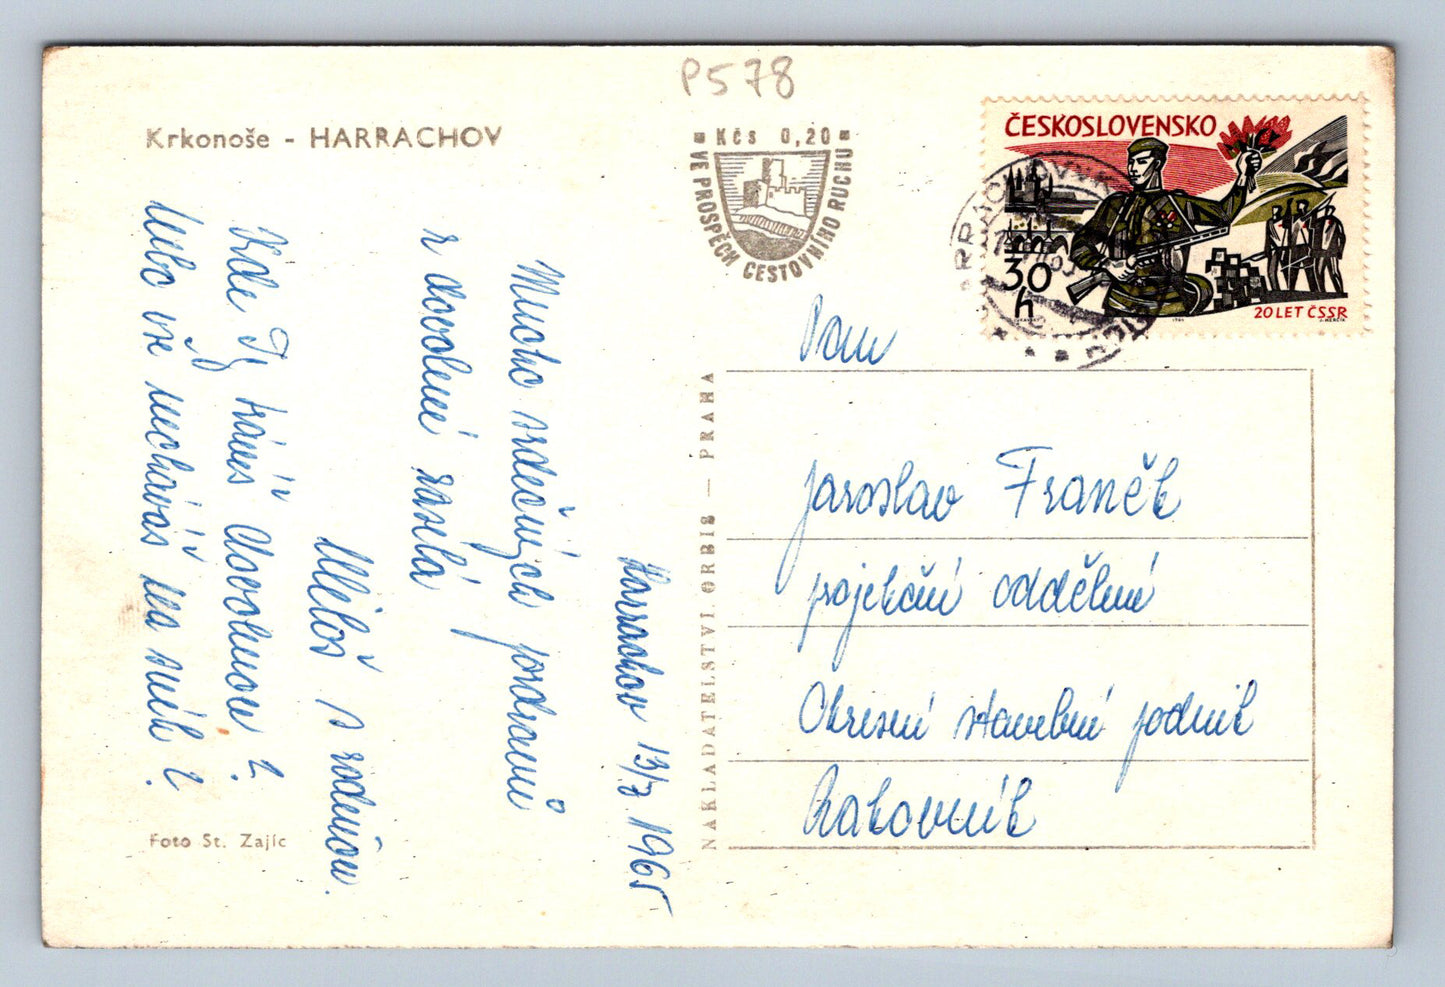 P578
Krkonoše - HARRACHOV
Kčs 0,20
VE PROSPĚCH CESTOVNÍHO RUCHU
ČESKOSLOVENSKO
30
h
20 LET ČSSR
HARRACHOV V KRK
Harrachov 13/7 1965
Mnoho srdečných pozdravů
z dovolené zasílá
Miloš s rodinou.
Kde Ty trávíš dovolenou?
Nebo vše necháváš na sníh?
Foto St. Zajíc
NAKLADATELSTVÍ ORBIS — PRAHA
Pan
Jaroslav Franěk
projekční oddělení
Okresní stavební podnik
Rakovník